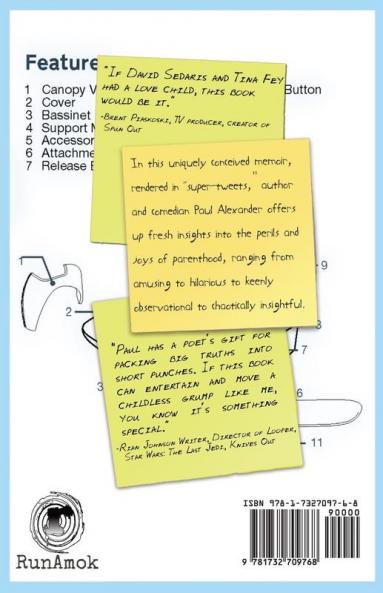 Feature
1 Canopy V
Button
2 Cover
3 Bassinet
4 Support M
5 Accessor
6 Attachme
7 Release B
"If David Sedaris and Tina Fey
had a love child, this book
would be it."
-Brent Piaskoski, TV producer, creator of
Spun Out
In this uniquely conceived memoir,
rendered in "super-tweets," author
and comedian Paul Alexander offers
up fresh insights into the perils and
joys of parenthood, ranging from
amusing to hilarious to keenly
observational to chaotically insightful.
1
9
2
8
7
3
6
11
"Paul has a poet's gift for
packing big truths into
short punches. If this book
can entertain and move a
childless grump like me,
you know it's something
special."
-Rian Johnson Writer, Director of Looper,
Star Wars: The Last Jedi, Knives Out
RunAmok
ISBN 978-1-7327097-6-8
90000
9 781732 709768